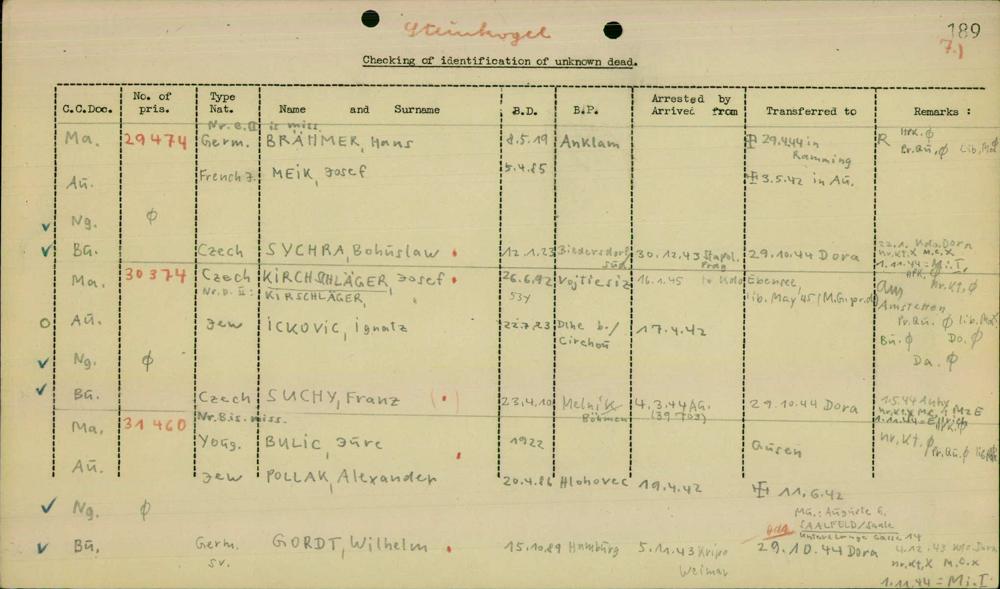 Steinkogel
189
7.)
Checking of identification of unknown dead.
C.C.Doc. No. of pris. Type Nat. Name and Surname B.D. B.P. Arrested by Arrived from Transferred to Remarks :
Nr. e.a is miss.
Ma. 29474 Germ. BRÄHMER, Hans 8.5.19 Anklam 29.4.44 in Ramming R HPK. ∅
Pr.Bü. ∅ Lib. Mat ∅
Aü. French J. MEIK, Josef 5.4.85 3.5.42 in Aü.
Ng. ∅
Bü. Czech SYCHRA, Bohuslaw 12.1.23 Biedersdorf süd 30.12.43 Stapol. Prag 29.10.44 Dora 22.1. Kdo. Dora
nr.Kt.X M.C.X
1.11.44 = Mi.I,
Ma. 30374 Czech KIRCHSCHLÄGER, Josef 26.6.92 Vojtiesiz 16.1.45 to Kdo Ebensee, HPK. ∅
Nr.D.Ü: KIRSCHLÄGER, 53y lib. May 45 (M.G.pr.d) aus nr.Kt. ∅
Amstetten
Aü. Jew ICKOVIC, Ignatz 22.7.23 Dlhe b./ Circhou 17.4.42 Pr.Bü. ∅ lib. Mat
Bü. ∅ Do. ∅
Ng. ∅ Da. ∅
Bü. Czech SUCHY, Franz (•) 23.4.10 Melnik Böhmen 4.3.44 AG. (39703) 29.10.44 Dora 1.5.44
nr.Kt.X M.C. 1 Mz E
1.11.44 = Ellrich
Nr. B is miss.
Ma. 31460 Youg. BULIC, Jure 1922 Gusen HPK. ∅
nr. Kt. ∅
Pr.Bü. ∅
Aü. Jew POLLAK, Alexander 20.4.86 Hlohovec 19.4.42 11.6.42
Ng. ∅ Mü.: Auguste G.
SAALFELD/Saale
14
Bü. Germ. sv. GORDT, Wilhelm 15.10.89 Hamburg 5.11.43 Kripo Weimar 29.10.44 Dora 4.12.43 Kdo. Dora
nr.Kt.X M.C.X
1.11.44 = Mi.I